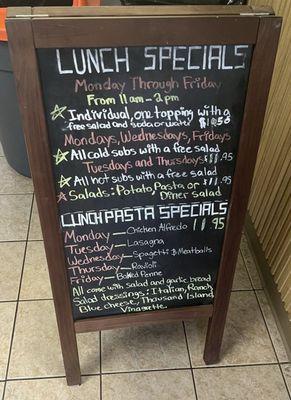 LUNCH SPECIALS
Monday Through Friday
From 11am-2pm
Individual, one topping with a
free salad and soda or water $10.50
Mondays, Wednesdays, Fridays
All cold subs with a free salad
Tuesdays and Thursdays $11.95
All hot subs with a free salad
Salads: Potato, Pasta or $11.95
Dinner salad
LUNCH PASTA SPECIALS
Monday—Chicken Alfredo 11.95
Tuesday—Lasagna
Wednesday—Spaghetti & Meatballs
Thursday—Ravioli
Friday—Baked Penne
All come with salad and garlic bread
Salad dressings: Italian, Ranch,
Blue cheese, Thousand Island
Vinagrette.